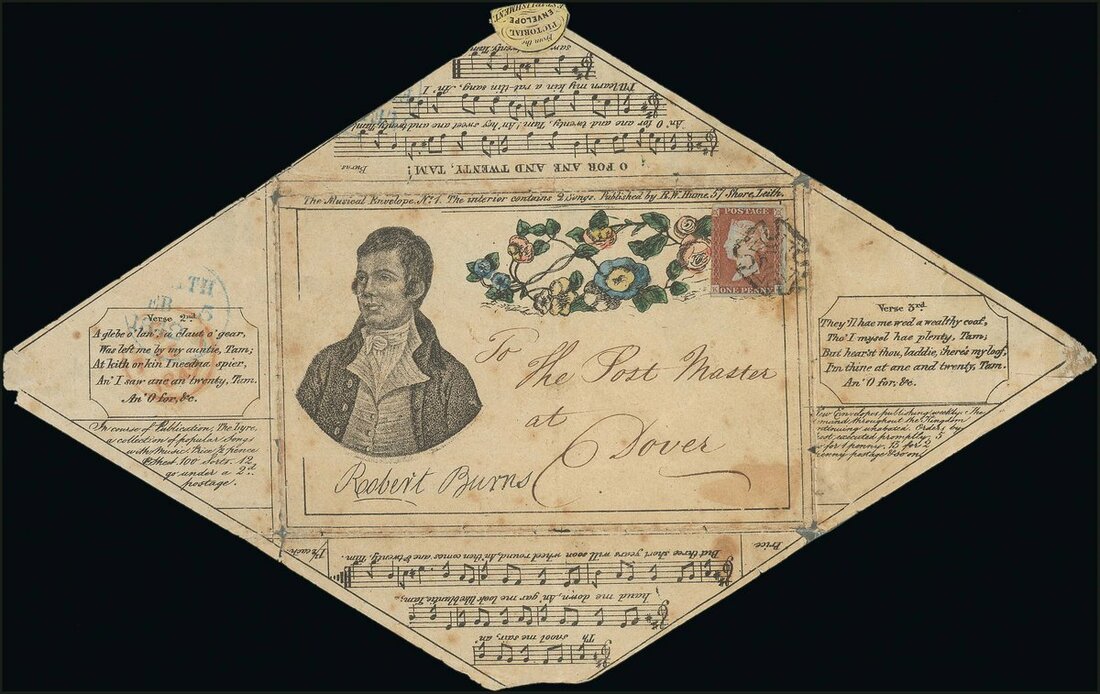 From the
PICTORIAL
ENVELOPE
ESTABLISHMENT.
saw twenty, Tam.
I'll learn my kin a rattlin sang, An' I
An' O for ane and twenty, Tam! An' hey sweet ane and twenty, Tam!
O FOR ANE AND TWENTY, TAM!
Burns
The Musical Envelope, No. 1. The interior contains 2 Songs. Published by R. W. Hume, 57 Shore, Leith.
POSTAGE
ONE PENNY
To
The Post Master
at
Dover
Robert Burns
Verse 2nd
A glebe o' lan', a claut o' gear,
Was left me by my auntie, Tam;
At kith or kin I needna spier,
An' I saw ane an' twenty, Tam.
An' O for, &c.
In course of Publication, The Lyre,
a collection of popular Songs
with Music. Price ½ pence
Sheet. 100 Sorts. 12
go under a 2d.
postage.
Verse 3rd
They'll hae me wed a wealthy coof,
Tho' I mysel hae plenty, Tam;
But hear'st thou, laddie, there's my loof,
I'm thine at ane and twenty, Tam.
An' O for, &c.
New Envelopes publishing weekly. The
demand throughout the Kingdom
continuing unabated. Orders by
post executed promptly, 5
for 1 penny, 13 for 2
penny postage & so on.
Price
1d. each.
Th
snool me sair, an'
haud me down, An' gar me look like bluntie, Tam;
But three short years will soon wheel round, An' then comes ane & twenty, Tam.